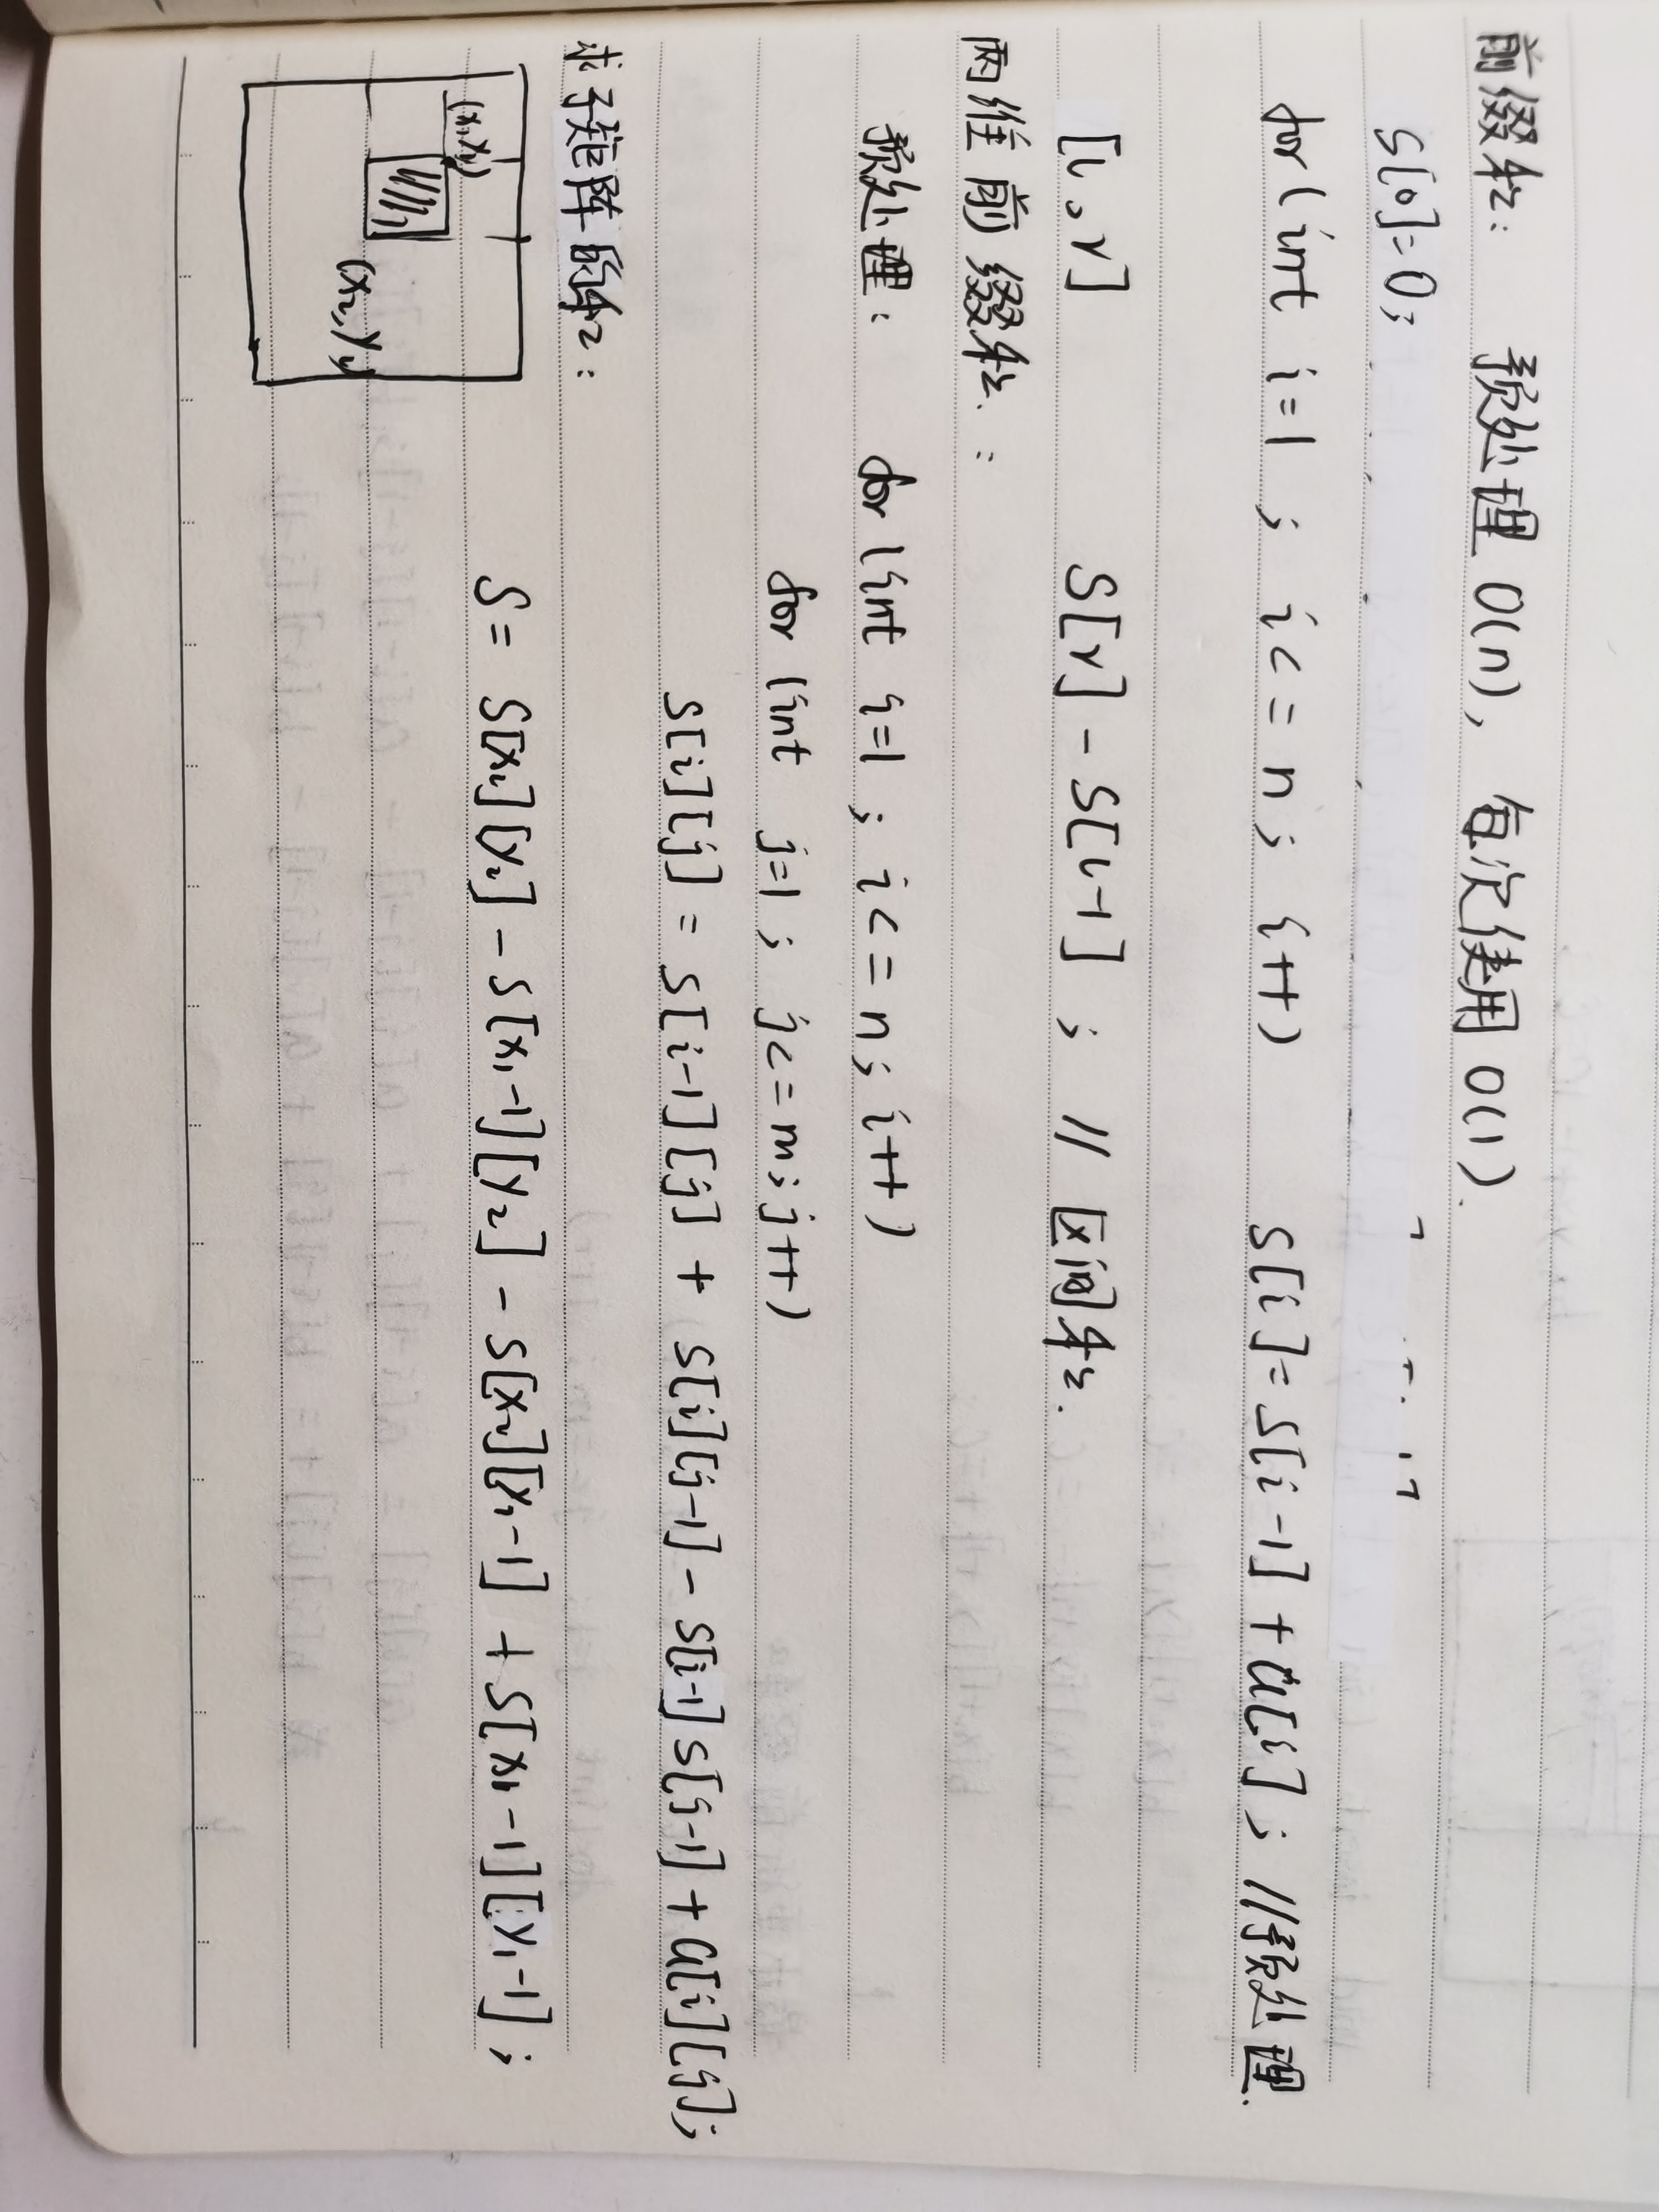 前缀和: 预处理 O(n), 每次使用 O(1).
S[0]=0;
for(int i=1 ; i<=n; i++) S[i]=S[i-1]+a[i]; //预处理.
[l,r] S[r]-S[l-1] ; // 区间和.
两维前缀和.:
预处理: for(int i=1 ; i<=n; i++)
for(int j=1; j<=m; j++)
S[i][j] = S[i-1][j] + S[i][j-1] - S[i-1]S[j-1] + a[i][j];
求子矩阵的和:
S= S[x₂][y₂] - S[x₁-1][y₂] - S[x₂][y₁-1] + S[x₁-1][y₁-1];
(x₁,y₁)
(x₂,y₂)